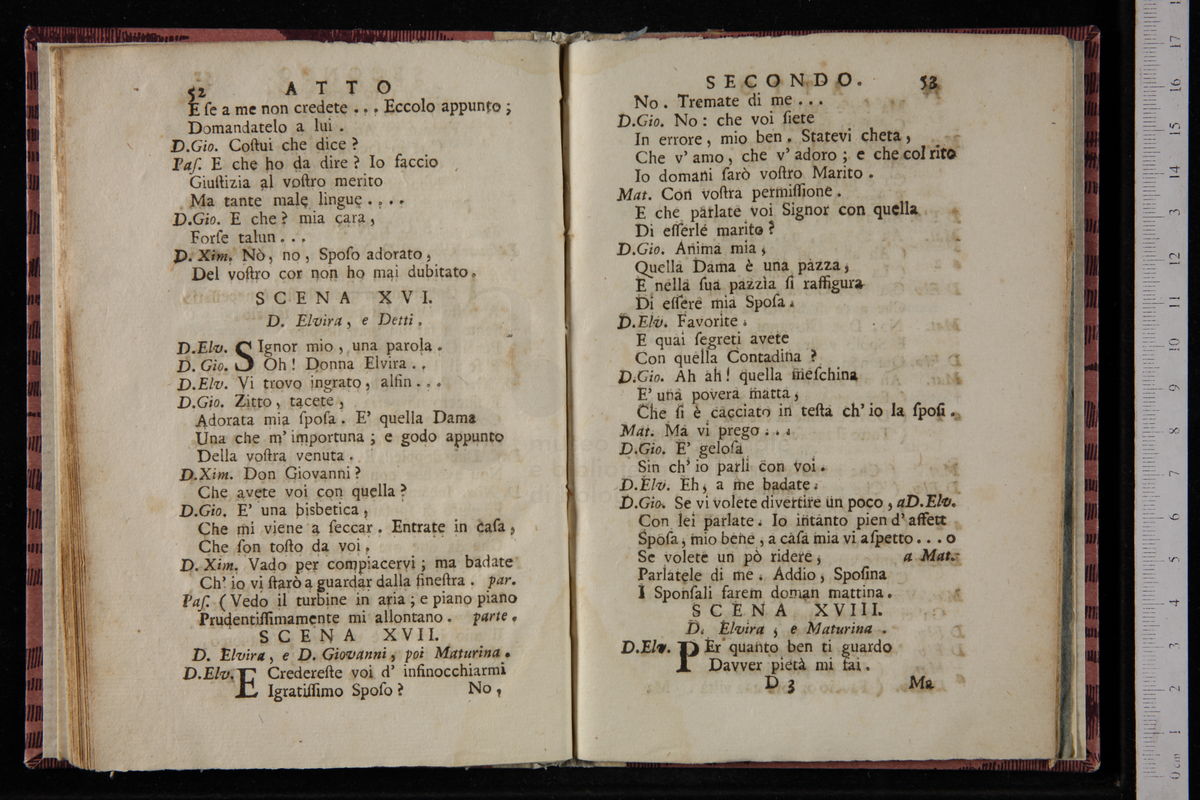 52 ATTO
E ſe a me non credete ... Eccolo appunto ;
Domandatelo a lui .
D.Gio. Coſtui che dice ?
Paſ. E che ho da dire ? Io faccio
Giuſtizia al voſtro merito
Ma tante male lingue ....
D.Gio. E che ? mia cara ,
Forſe talun ...
D. Xim. Nò , no , Spoſo adorato ,
Del voſtro cor non ho mai dubitato .
SCENA XVI.
D. Elvira , e Detti .
D.Elv. SIgnor mio , una parola .
D. Gio. Oh ! Donna Elvira ..
D.Elv. Vi trovo ingrato , alfin ...
D.Gio. Zitto , tacete ,
Adorata mia ſpoſa . E' quella Dama
Una che m' importuna ; e godo appunto
Della voſtra venuta .
D.Xim. Don Giovanni ?
Che avete voi con quella ?
D.Gio. E' una bisbetica ,
Che mi viene a ſeccar . Entrate in caſa ,
Che ſon toſto da voi .
D. Xim. Vado per compiacervi ; ma badate
Ch' io vi ſtarò a guardar dalla fineſtra . par.
Paſ. ( Vedo il turbine in aria ; e piano piano
Prudentiſſimamente mi allontano . parte .
SCENA XVII.
D. Elvira , e D. Giovanni , poi Maturina .
D.Elv. E Credereſte voi d' infinocchiarmi
Igratiſſimo Spoſo ? No ,
SECONDO. 53
No . Tremate di me ...
D.Gio. No : che voi ſiete
In errore , mio ben . Statevi cheta ,
Che v' amo , che v' adoro ; e che col rito
Io domani farò voſtro Marito .
Mat. Con voſtra permiſſione .
E che parlate voi Signor con quella
Di eſſerle marito ?
D.Gio. Anima mia ,
Quella Dama è una pazza ,
E nella ſua pazzìa ſi raffigura
Di eſſere mia Spoſa .
D.Elv. Favorite .
E quai ſegreti avete
Con quella Contadina ?
D.Gio. Ah ah ! quella meſchina
E' una povera matta ,
Che ſi è cacciato in teſta ch' io la ſpoſi .
Mat. Ma vi prego ...
D.Gio. E' geloſa
Sin ch' io parli con voi .
D.Elv. Eh , a me badate .
D.Gio. Se vi volete divertire un poco , a D.Elv.
Con lei parlate . Io intanto pien d' affett
Spoſa , mio bene , a caſa mia vi aſpetto ... o
Se volete un pò ridere , a Mat.
Parlatele di me . Addio , Spoſina
I Sponſali farem doman mattina .
SCENA XVIII.
D. Elvira , e Maturina .
D.Elv. PEr quanto ben ti guardo
Davver pietà mi fai .
D 3 Ma